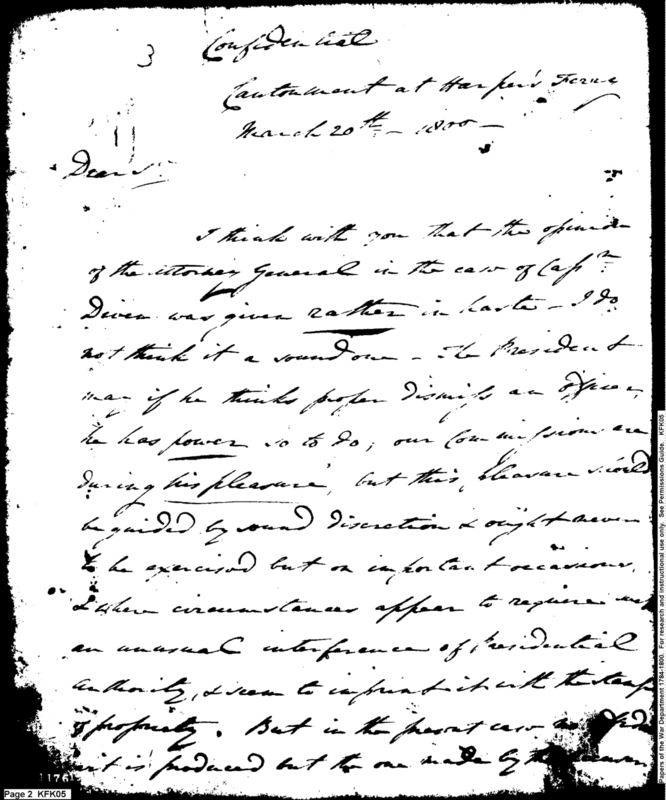 3
Confidential
Cantonment at Harper's Ferry
March 20th - 1800 -
Dear Sir
I think with you that the opinion
of the attorney General in the case of Capn
Diven was given rather in haste - I do
not think it a sound one - The President
may if he thinks proper dismiss an officer,
he has power so to do; our Commissions are
during his pleasure, but this pleasure should
be guided by sound discretion & ought never
to be exercised but on important occasions,
& where circumstances appear to require such
an unusual interference of Presidential
authority, & seem to imprint it with the stamp
of propriety. But in the present case no
is produced but the one made by the
1176
Page 2 KFK05
Papers of the War Department 1784-1800. For research and instructional use only. See Permissions Guide. KFK05